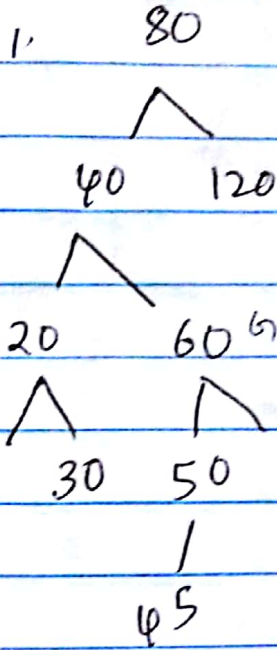 1. 80
40 120
20 60
30 50
45